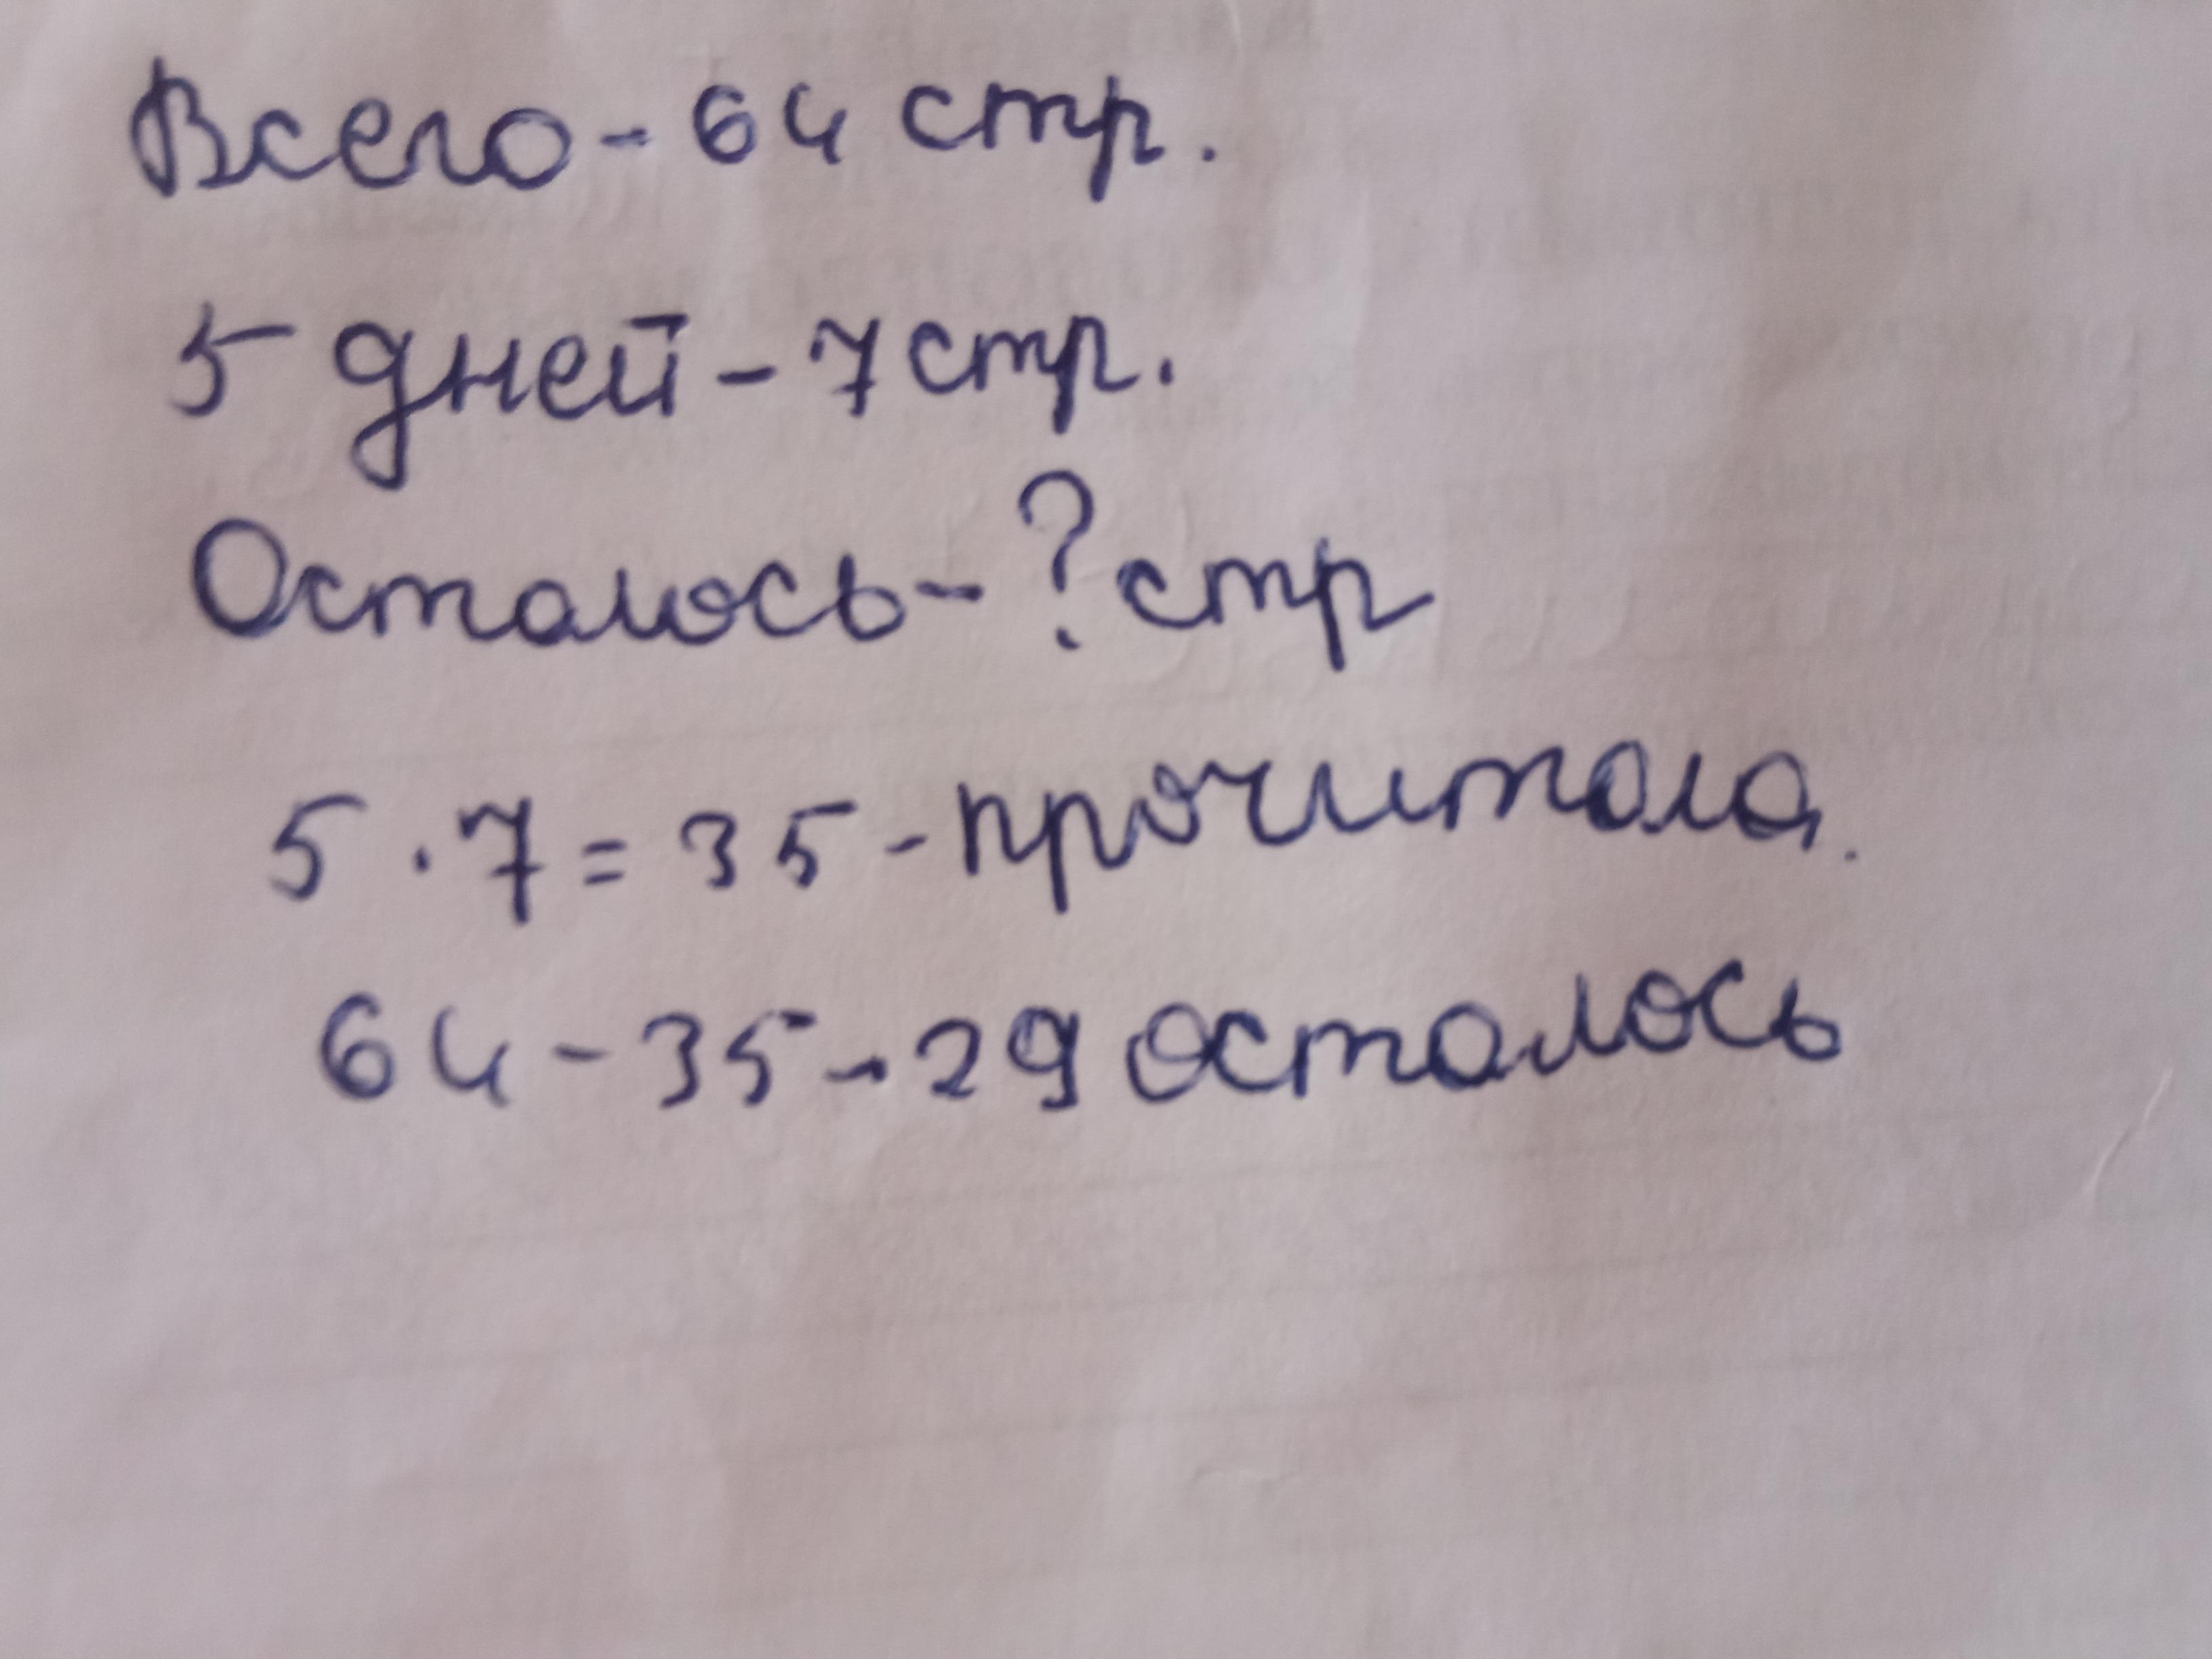 Всего - 64 стр.
5 дней - 7 стр.
Осталось - ? стр
5 · 7 = 35 - прочитала.
64 - 35 - 29 осталось